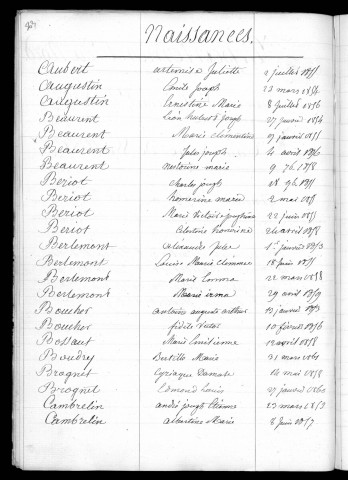 Naissances.
Caubert artemise Juliette 2 juillet 1855
Caugustin Emile Joseph 23 mars 1854
Caugustin Ernestine Marie 8 juillet 1856
Beaurent Léon Joseph 27 janvier 1854
Beaurent Marie clementine 19 janvier 1855
Beaurent Jules joseph 4 avril 1856
Beaurent marie 9 1858
Beriot charles joseph
Beriot homerine marie 2 mai
Beriot Marie 22 juin 1855
Beriot Clestine homerine avril 1858
Berlemont alexandre 1er janvier 1853
Berlemont Louise Marie clemence 18 juin 1855
Berlemont Marie Emma 22 mars 1858
Berlemont Marie irma 29 avril 1859
Boucher antoine auguste arthur 12 janvier 1853
Boucher fidèle Victor 10 fevrier 1856
Bossaut Marie avril 1858
Boudry Bertille Marie 31 mars 1861
Brognet Cyriaque 14 mai 1858
Brognet Edmond Louis 27 janvier 1860
Cambrelin andré joseph Etienne 23 mars 1853
Cambrelin albertine Marie 8 juin 1857